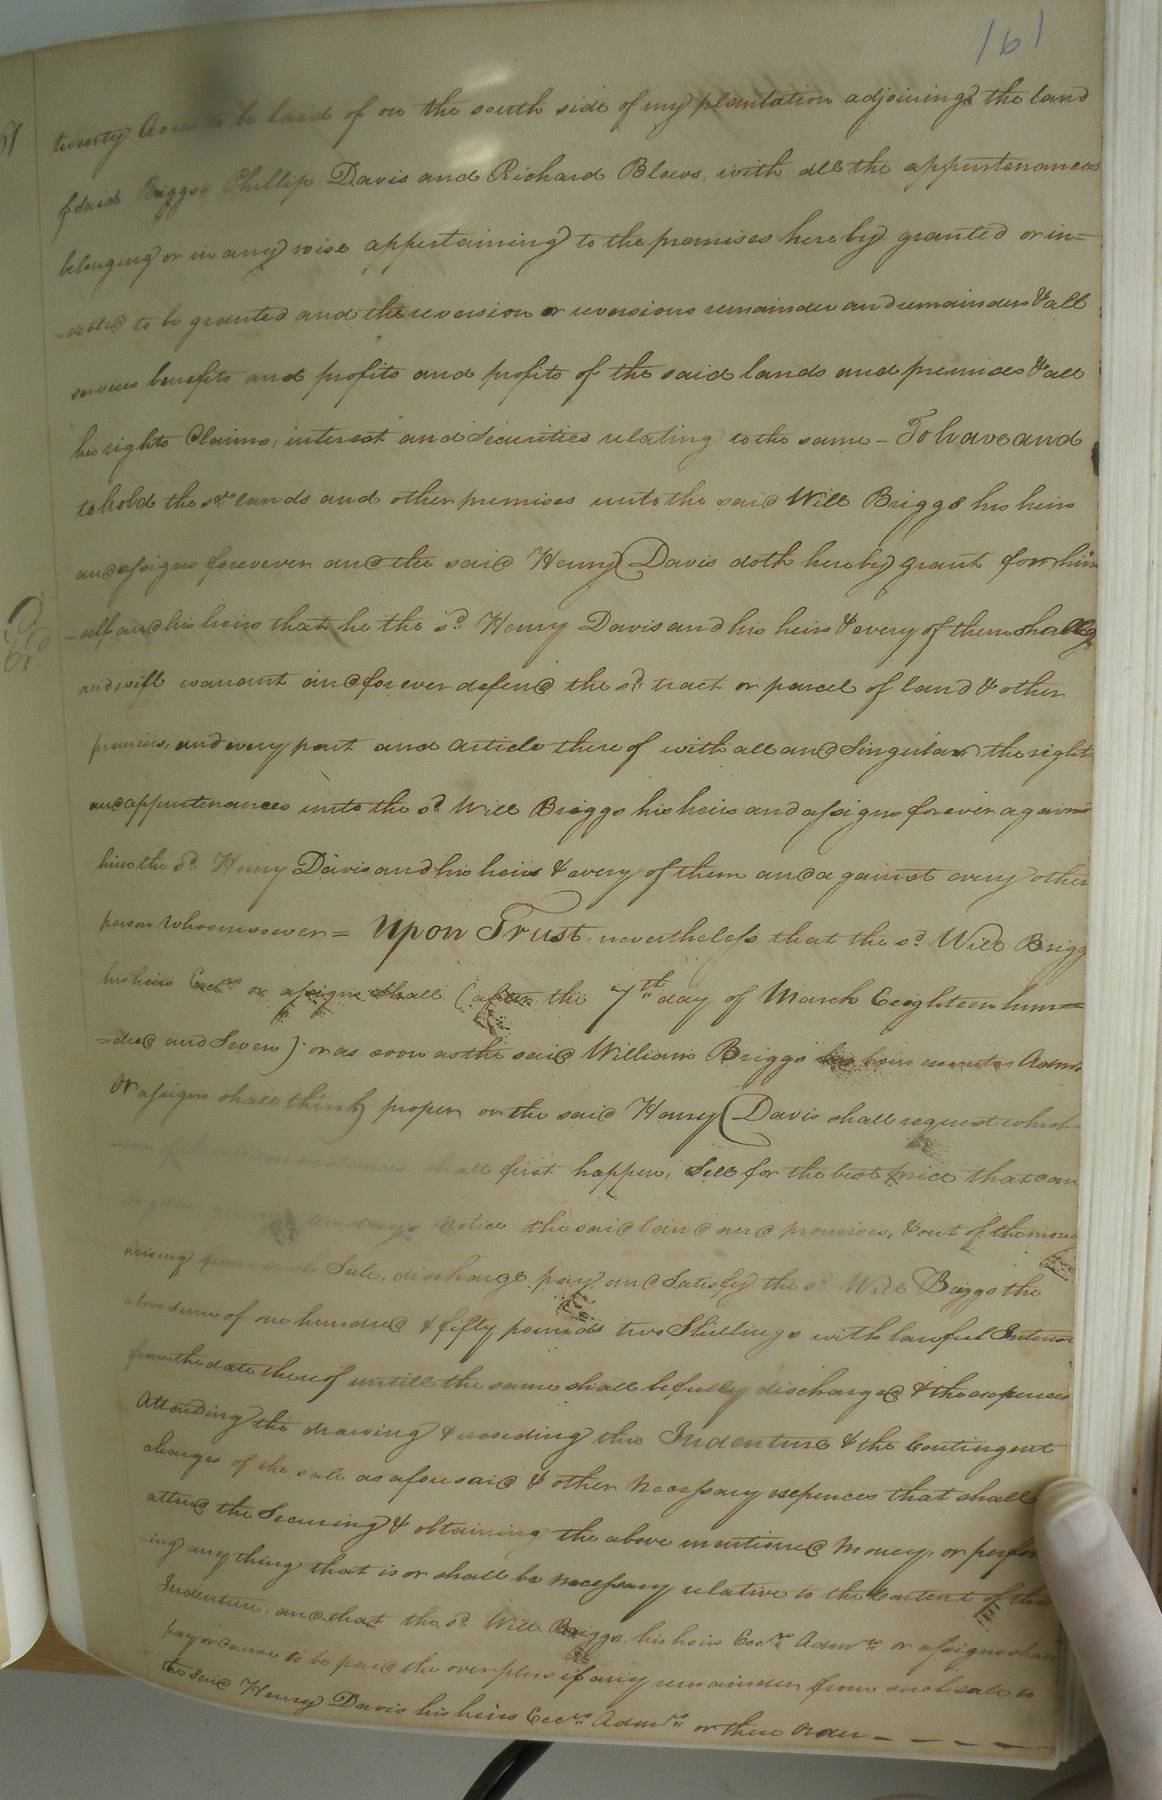 161
twenty Acres to be laid of on the south side of my plantation adjoining the land
of said Briggs Phillip Davis and Richard Blows, with all the appurtenances
belonging or in any wise appertaining to the premises hereby granted or in=
to be granted and the reversion or reversions remainder and remainders & all
services benefits and profits and profits of the said lands and premises & all
his rights Claims, interest and Securities relating to the same - To have and
to hold the sd. lands and other premises unto the said Will Briggs his heirs
and assigns forever and the said Henry Davis doth hereby grant for him
-self and his heirs that he the sd. Henry Davis and his heirs & every of them shall
and will warrant and forever defend the sd. tract or parcel of land & other
premises, and every part and article there of with all and Singular the right
and appurtenances unto the sd. Will Briggs his heirs and assigns forever against
him the sd. Henry Davis and his heirs & every of them and against every other
person whomsoever = Upon Trust nevertheless that the sd. Will Brigg
his heirs Exrs. or assigns shall (after the 7th. day of March Eeighteen hun=
=dred and Seven) or as soon as the said William Briggs his heirs Adms
or assigns shall think proper or the said Henry Davis shall request which
shall first happen, Sell for the best price that can
ten days Notice the said land and premises, & out of the mony
arising from such Sale, discharge pay and Satisfy the sd. Will Briggs the
above sum of one hundred & fifty pounds two Shillings with lawful Interest
from the date thereof untill the same shall be fully discharged & the expences
Attending the drawing & recording this Indenture & the Contingent
charges of the sale as aforesaid & other necessary expences that shall
attend the Securing & obtaining the above mentioned Money, or perform
=ing any thing that is or shall be necessary relative to the Content of this
Indenture, and that the sd. Will Briggs his heirs Exrs. Admrs. or assigns shall
pay or cause to be paid the over plus if any remainder from such sale to
the said Henry Davis his heirs Exrs. Admrs. or there order - - - - -